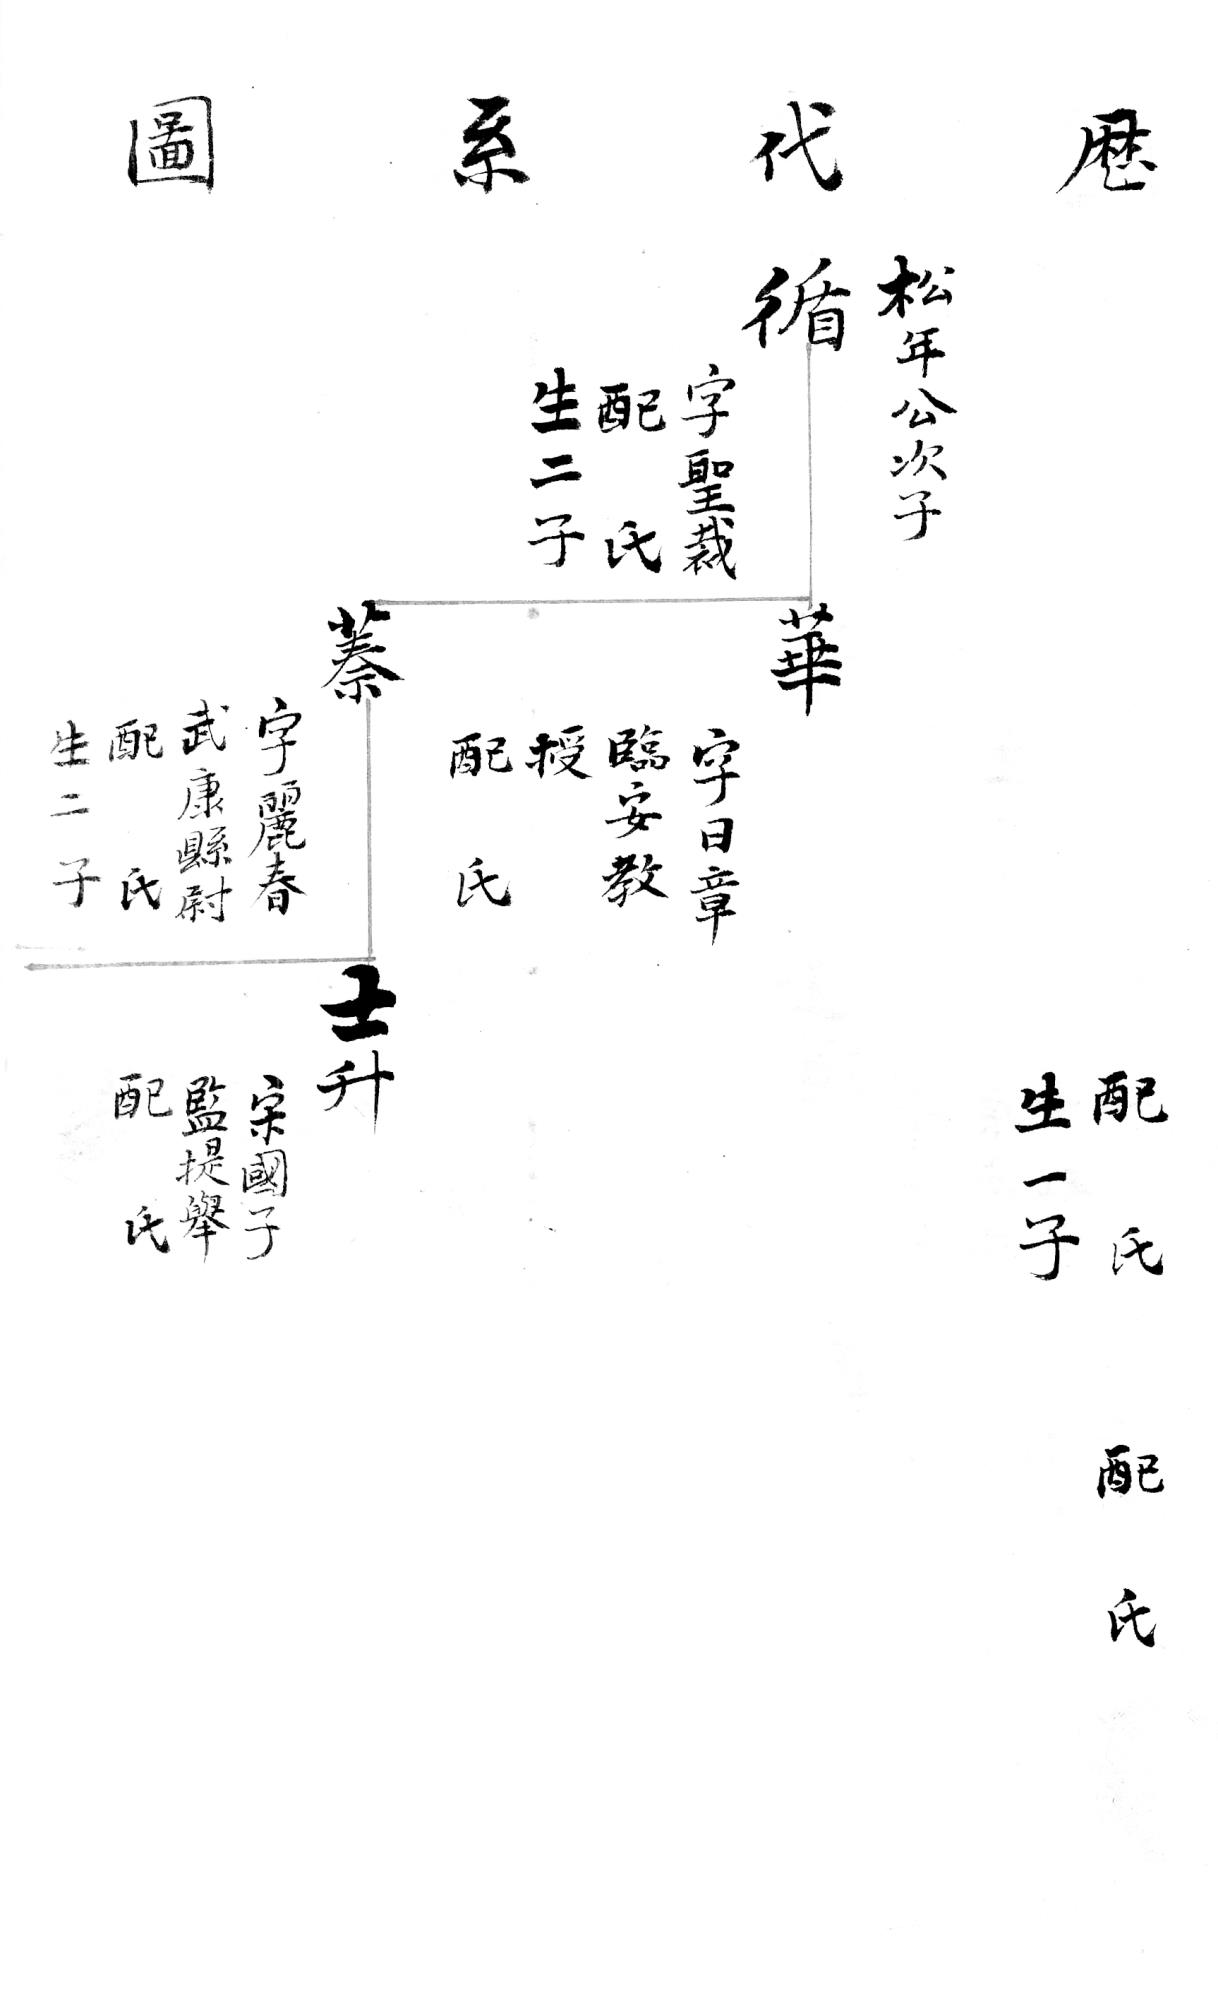 歷代系圖
配 氏
生一子
配 氏
松年公次子
循
字聖裁
配 氏
生二子
華
字日章
臨安教
授
配 氏
蓁
字麗春
武康縣尉
配 氏
生二子
士升
宋國子
監提舉
配 氏